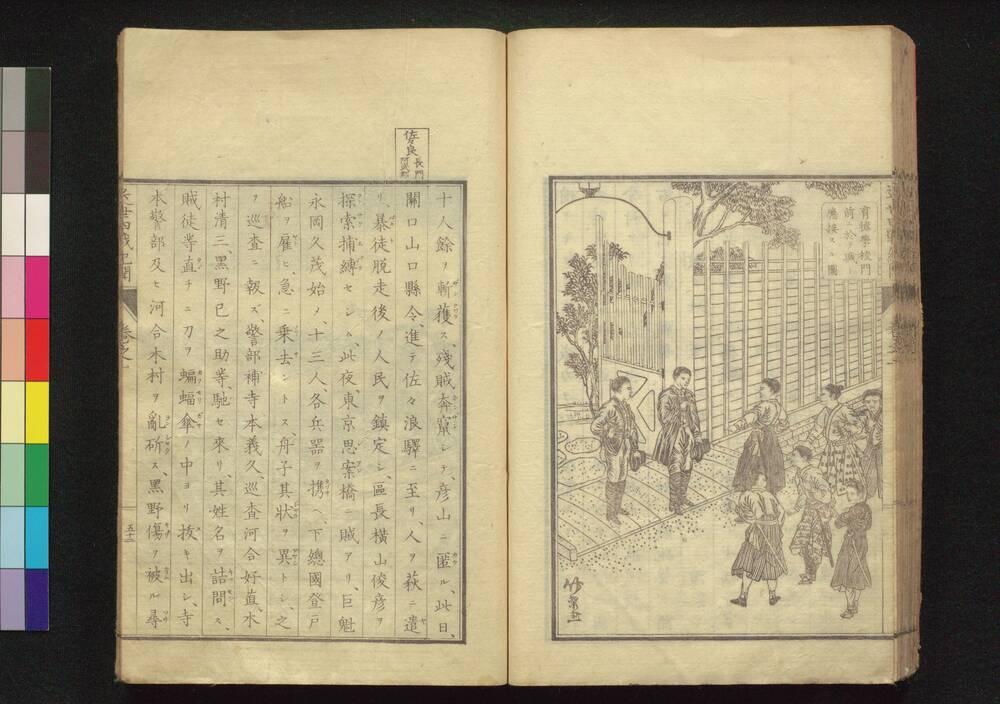 育徳學校門
前於テ賊ニ
應接スル圖
佐々良
長門
阿武郡
十人餘ヲ斬獲ス、殘賊奔竄シテ、彦山ニ匿ル、此日、
關口山口縣令、進テ佐々浪驛ニ至リ、人ヲ萩ニ遣
リ、暴徒脱走後ノ人民ヲ鎮定シ、區長横山俊彦ヲ
探索捕縛セシム、此夜、東京思案橋ニ賊アリ、巨魁
永岡久茂始ノ、十三人、各兵器ヲ携ヘ、下總國登戸
船ヲ雇ヒ、急ニ乗去ントス、舟子其状ヲ異トシ、之
ヲ巡査ニ報ズ、警部補寺本義久、巡査河合好直、木
村清三、黒野巳之助等、馳セ來リ、其姓名ヲ詰問ス、
賊徒等直チニ刀ヲ蝙蝠傘ノ中ヨリ拔キ出シ、寺
本警部及ヒ河合木村ヲ亂斫ス、黒野傷ヲ被ル尋
卷之一
五十三